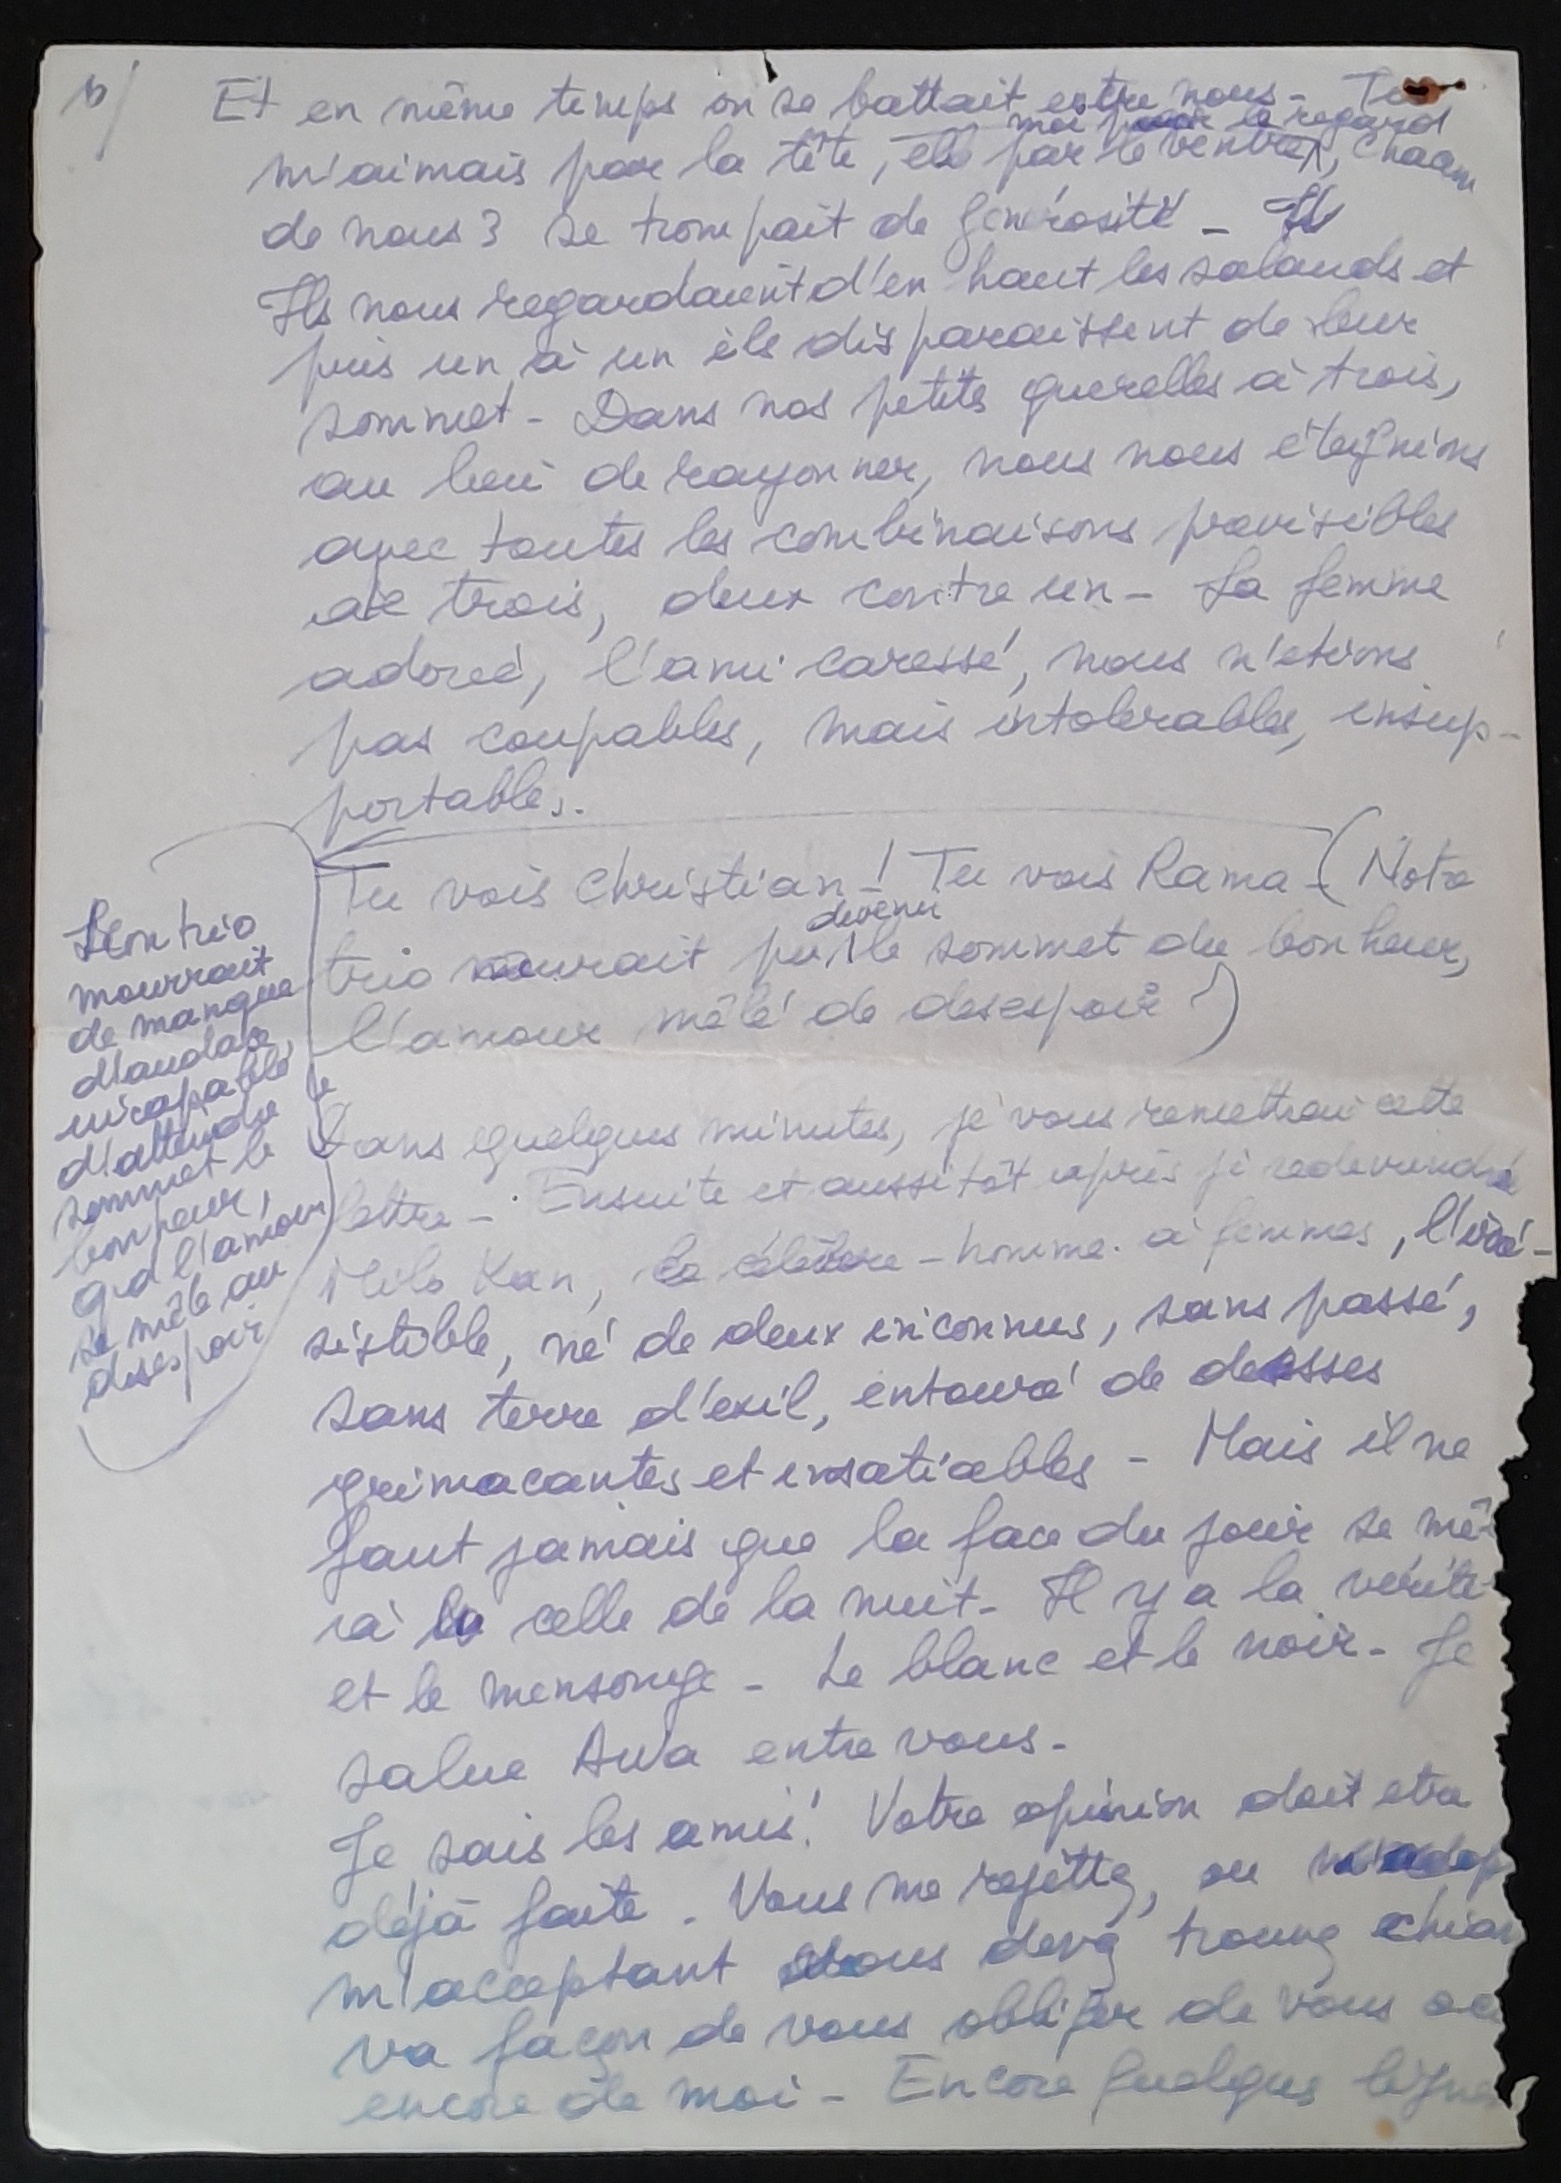 b/
Et en même temps on se battait entre nous - Tu
moi par le regard
m'aimais par la tête, elle par le ventre, chacun
de nous 3 se trompait de générosité -
Ils nous regardaient d'en haut les salauds et
puis un à un ils disparaissent de leur
sommet - Dans nos petits querelles à trois,
au lieu de rayonner, nous nous éteignions
avec toutes les combinaisons previsibles
de trois, deux contre un - La femme
adorée, l'ami caressé, nous n'etions
pas coupables, mais intolerables, insup-
portables.
Tu vois Christian ! Tu vois Rama - (Notre
devenir
trio aurait pu le sommet du bonheur,
l'amour mêlé de desespoir !)
trio
mourrait
de manque
d'audace,
incapable
d'attendre
sommet le
bonheur,
qd l'amour
se mêle au
desespoir
Dans quelques minutes, je vous remettrai cette
lettre - Ensuite et aussitôt après je redeviendrai
Milo Kan, le célèbre - homme à femmes, l'irré-
sistible, né de deux inconnus, sans passé,
sans terre d'exil, entouré de deesses
grimacantes et insatiables - Mais il ne
faut jamais que la face du jour se mê-
à celle de la nuit - Il y a la vérité
et le mensonge - Le blanc et le noir - Je
salue Awa entre vous -
Je sais les amis ! Votre opinion doit etre
déjà faite. Vous me rejettez, ou
m'acceptant vous devez trouvez
va façon de vous obliger de vous
encore de moi - Encore quelques lignes